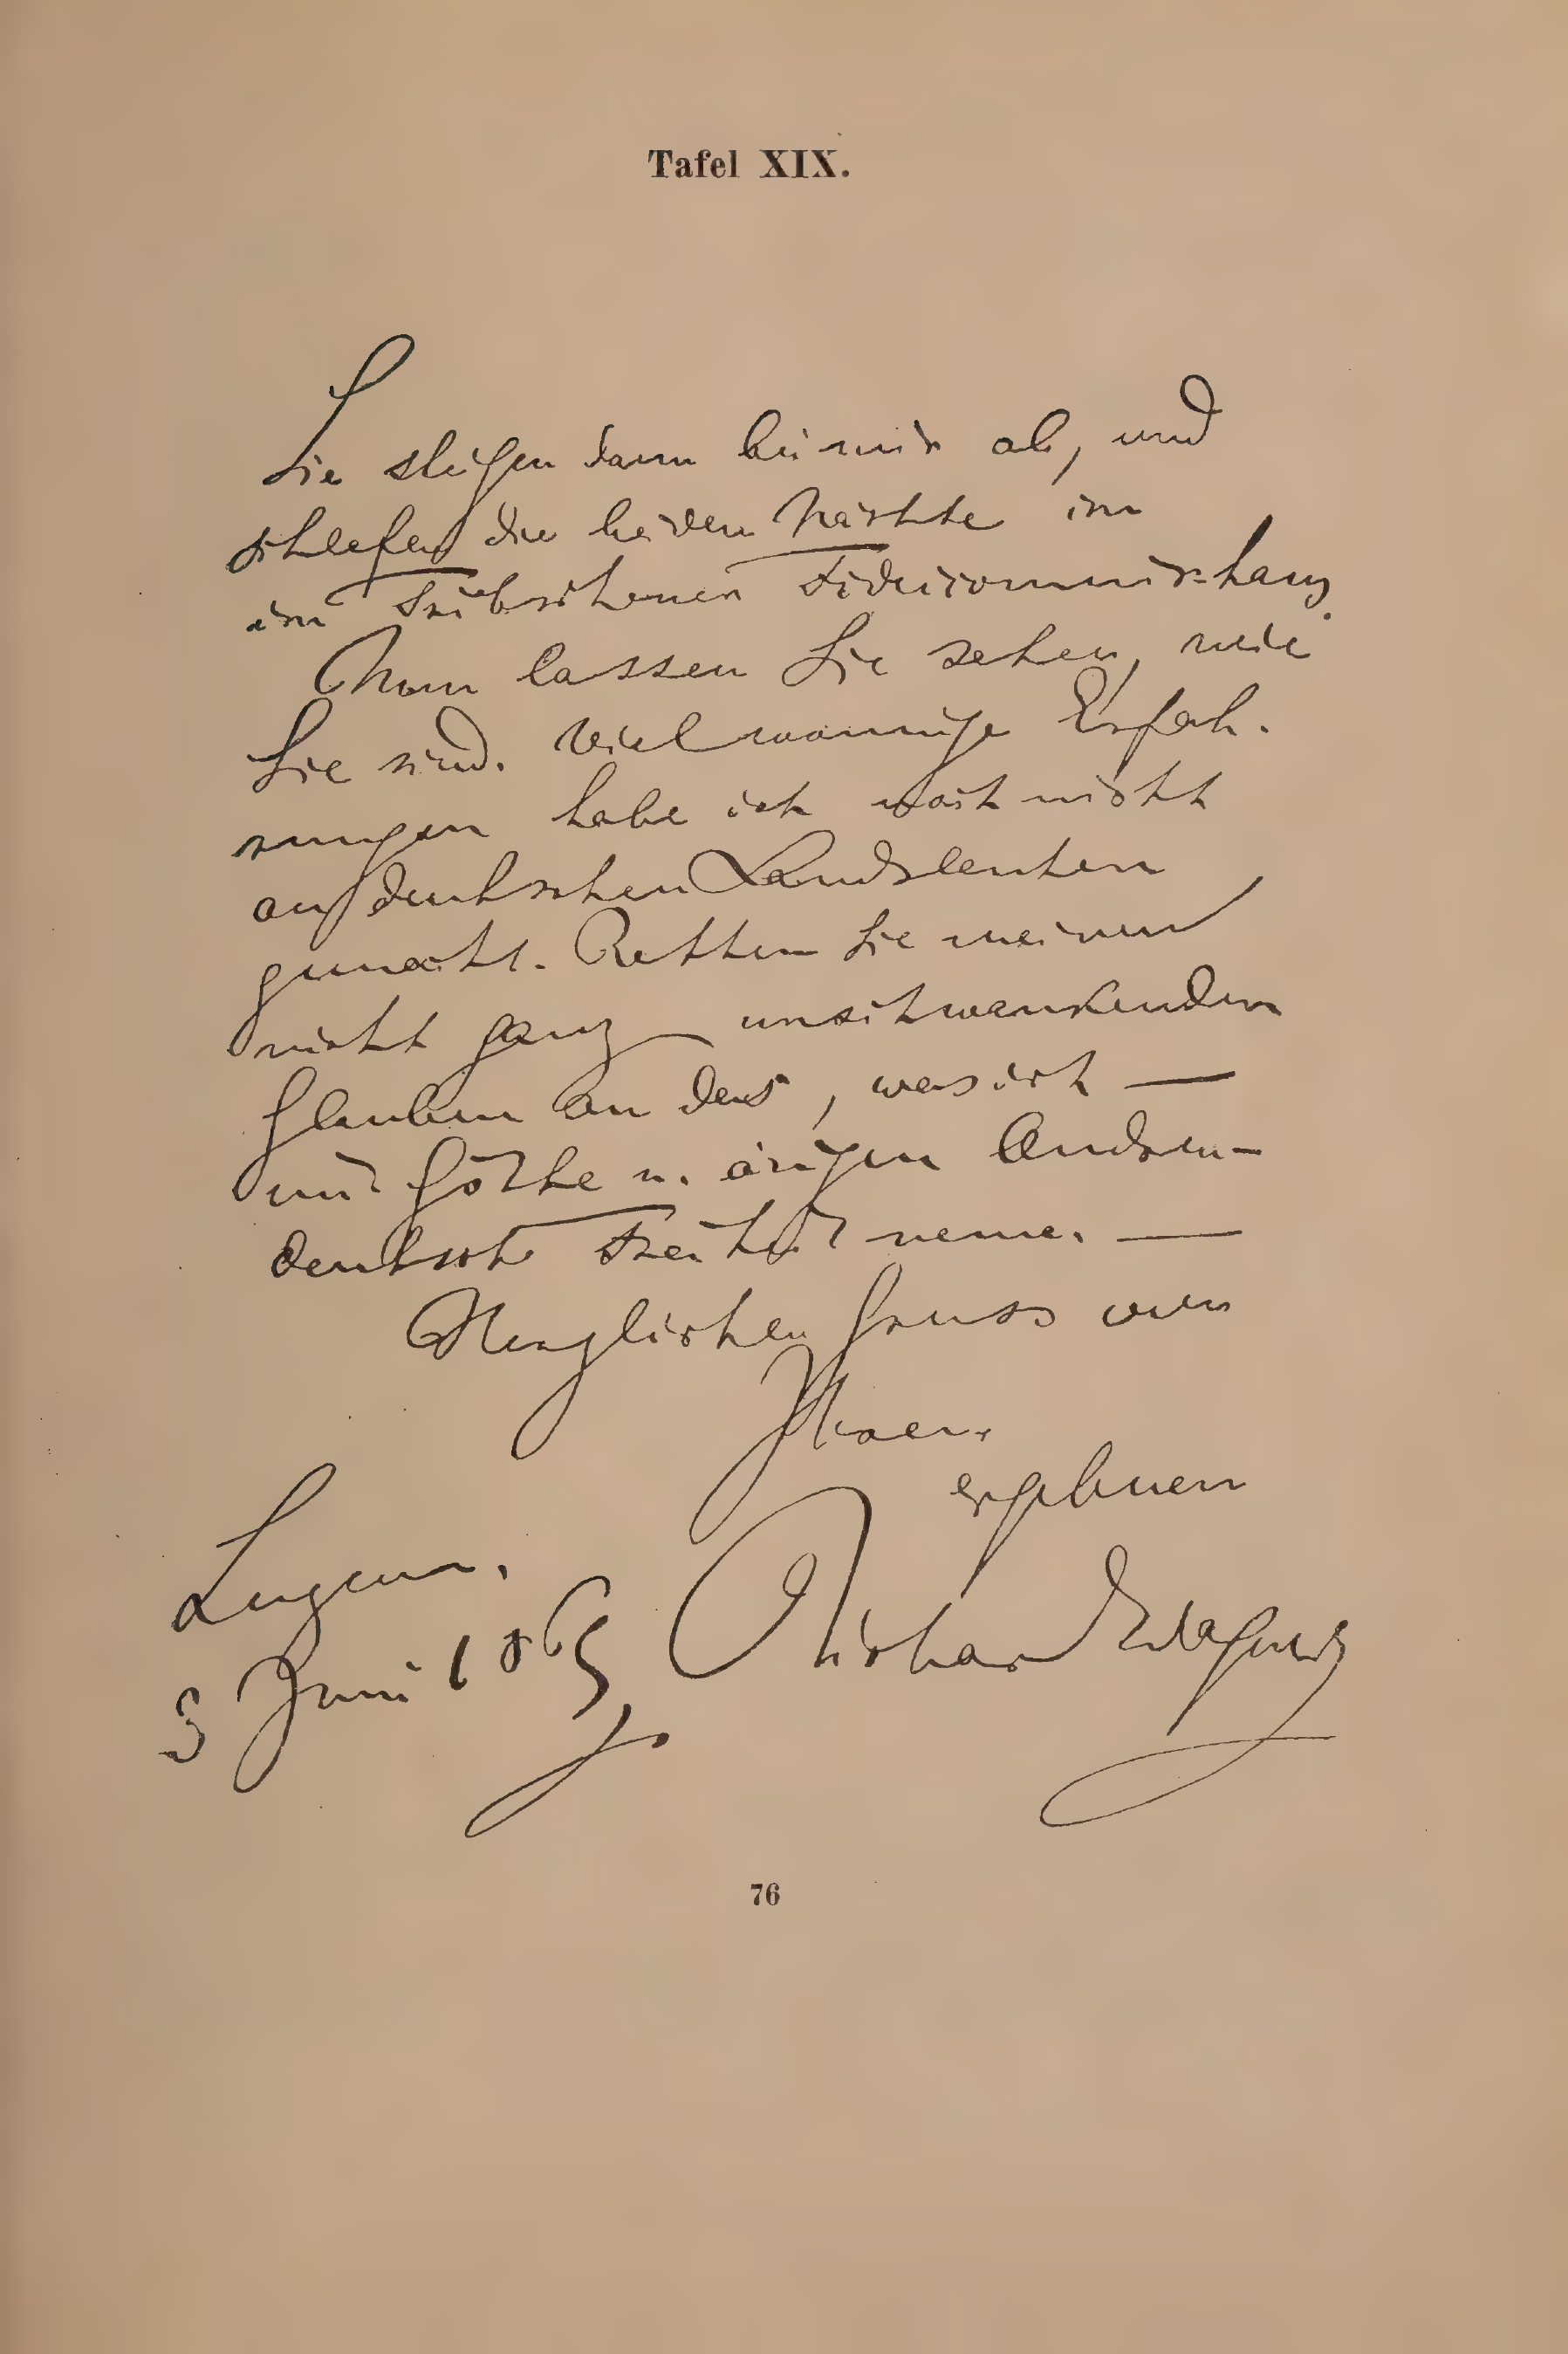 Tafel XIX.
Sie steigen dann bei mir ab, und
schlafen die beiden Nächte im
im Tribschener Fideicommis-haus.
Nun lassen Sie sehen, wie
Sie sind. Viel wonnige Erfah-
rungen habe ich noch nicht
an deutschen Landsleuten
gemacht. Retten Sie meinen
nicht ganz unschwankenden
Glauben an das, was ich —
mit Göthe u. einigen Andren -
deutsche Freiheit nenne. —
Herzlichen Gruss von
Ihrem
ergebnen
Luzern. Richard Wagner
3 Juni 1869
76